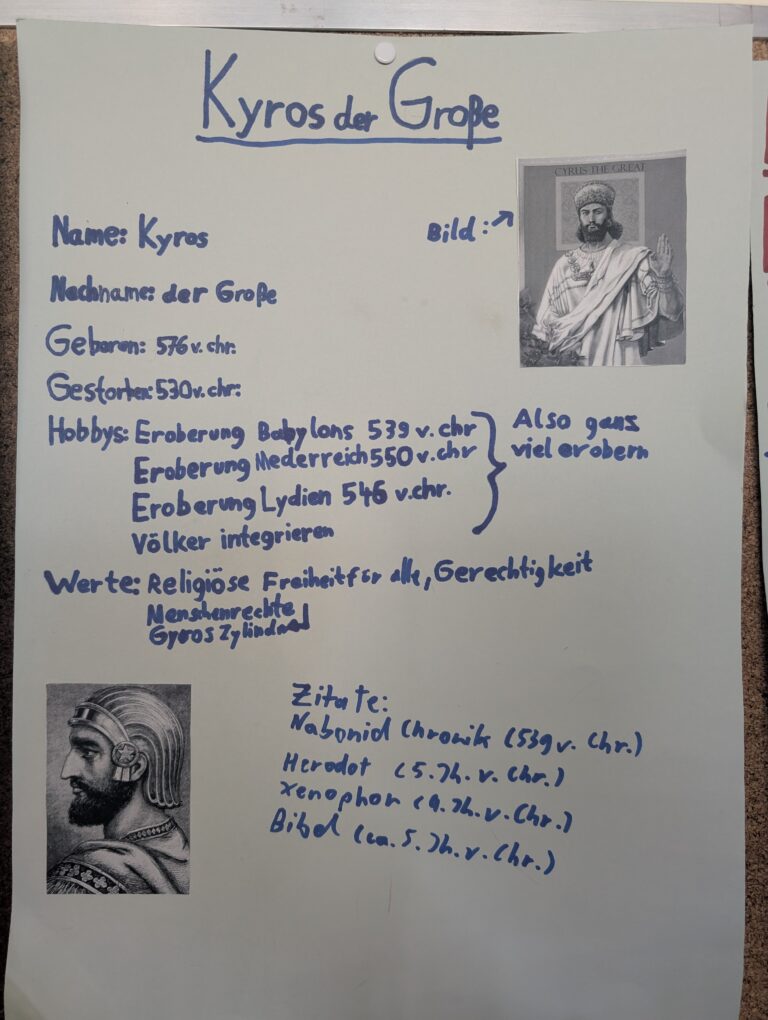 Kyros der Große
CYRUS THE GREAT
Bild:
Name: Kyros
Nachname: der Große
Geboren: 576 v. chr.
Gestorben: 530 v. chr.
Hobbys: Eroberung Babylons 539 v. chr
Eroberung Mederreich 550 v. chr
Eroberung Lydien 546 v. chr.
Völker integrieren
Also ganz
viel erobern
Werte: Religiöse Freiheit für alle, Gerechtigkeit
Menschenrechte
Gyros
Zitate:
Nabonid Chronik (539 v. Chr.)
Herodot (5. Jh. v. Chr.)
Xenophon (4. Jh. v. Chr.)
Bibel (ca. 5. Jh. v. Chr.)